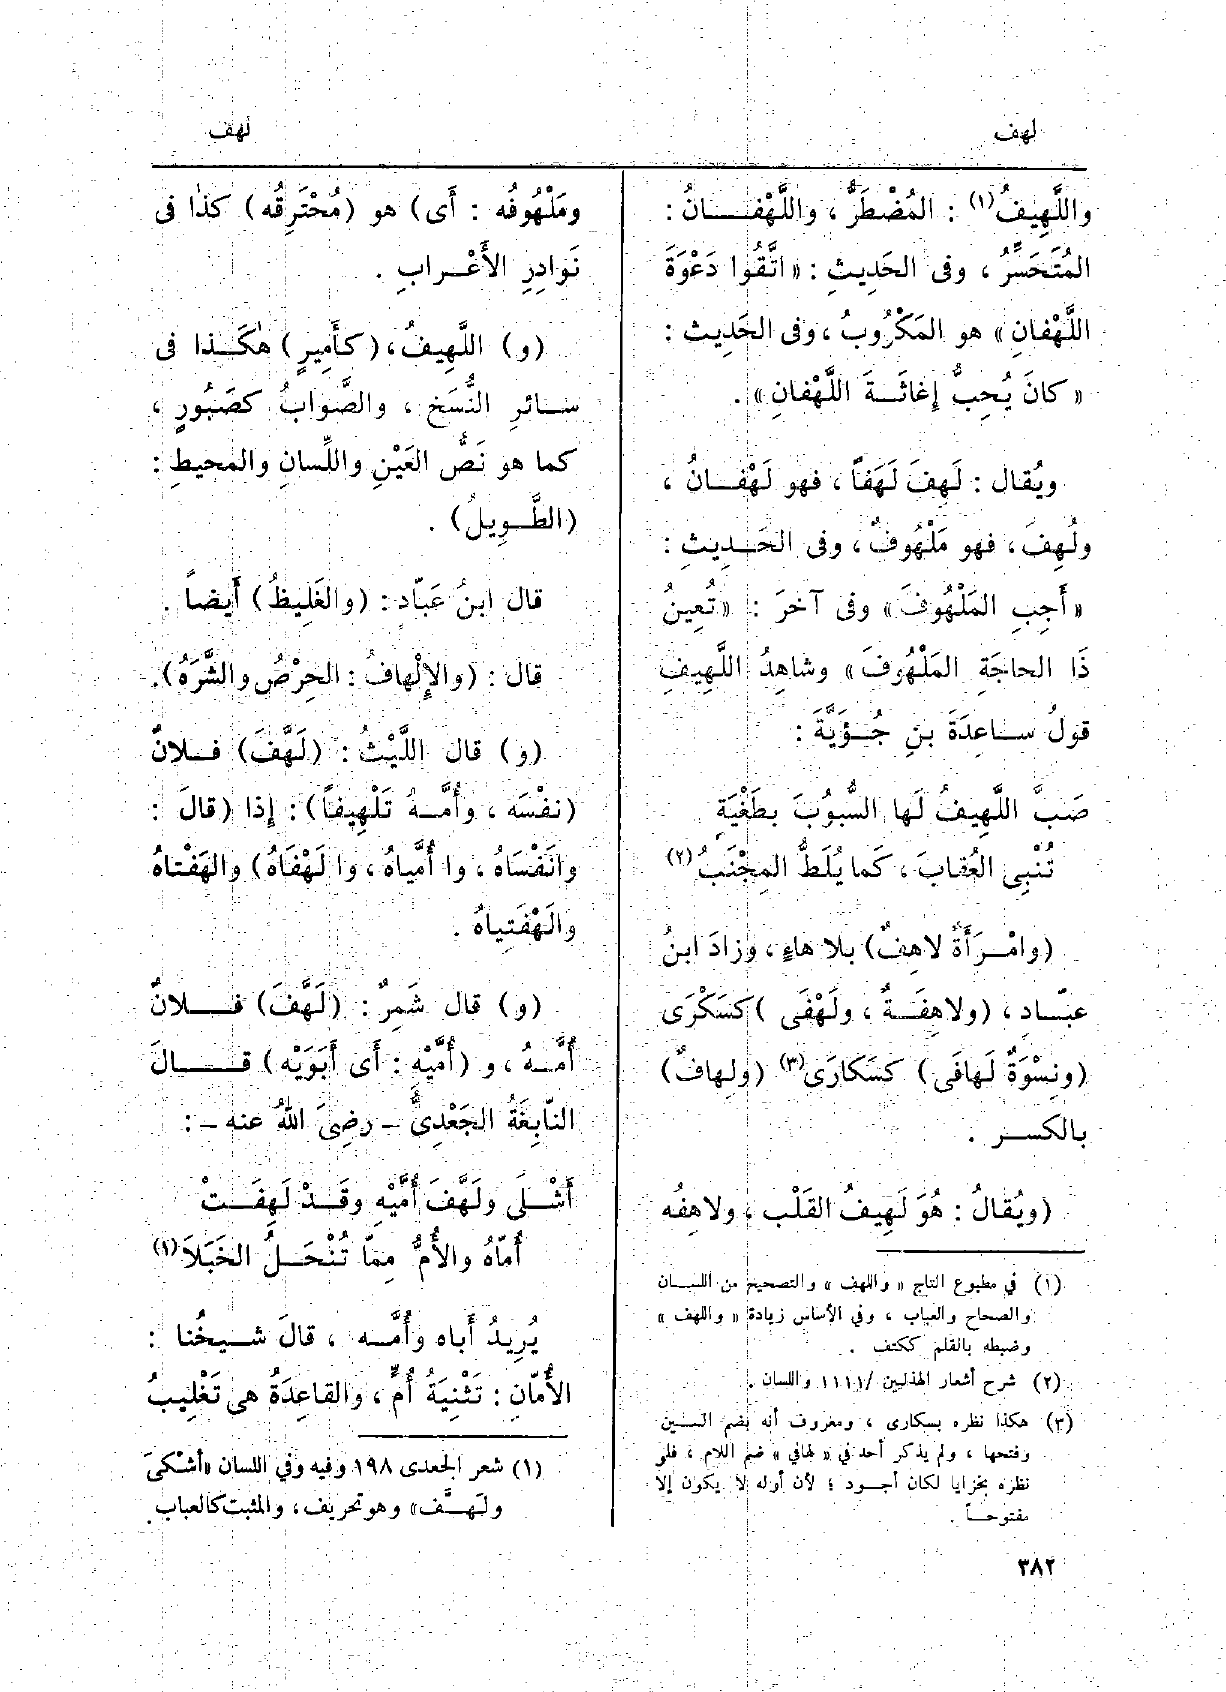 لهف
لهف
واللَّهِيفُ(١) : المُضْطَرُّ ، واللَّهْفَـانُ :
المُتَحَسِّرُ ، وفى الحَدِيثِ : «اتَّقُوا دَعْوَةَ
اللَّهْفانِ» هو المَكْرُوبُ ، وفى الحَدِيث :
«كانَ يُحِبُّ إِغاثَـةَ اللَّهْفانِ» .
ويُقال : لَهِفَ لَهَفاً ، فهو لَهْفـانُ ،
ولُهِفَ ، فهو مَلْهُوفٌ ، وفى الحَـدِيثِ :
«أَجِبِ المَلْهُوفَ» وفى آخرَ : «تُعِينُ
ذَا الحاجَةِ المَلْهُوفَ» وشاهِدُ اللَّهِيفِ
قولُ ساعِدَةَ بنِ جُـؤَيَّةَ :
صَبَّ اللَّهِيفُ لَها السُّبُوبَ بِطَغْيَةٍ
تُنْبِى العُقابَ ، كَما يُلَطُّ المِجْنَبُ(٢)
(وامْـرَأَةٌ لاهِفٌ) بلا هاءٍ ، وزادَ ابنُ
عبّـادٍ ، (ولاهِفَـةٌ ، ولَهْفَى) كسَكْرَى
(ونِسْوَةٌ لَهافَى) كسَكارَى(٣) (ولِهافٌ)
بالكسـر .
(ويُقالُ : هُوَ لَهِيفُ القَلْبِ ، ولاهِفُه
(١) في مطبوع التاج «واللهف» والتصحيح من اللسان
والصحاح والعباب ، وفي الأساس زيادة «واللهف»
وضبطه بالقلم ككتف .
(٢) شرح أشعار الهذليين /١١١١ واللسان .
(٣) هكذا نظره بسكارى ، ومعروف أنه بضم السين
وفتحها ، ولم يذكر أحد في «لهافي» ضم اللام ، فلو
نظره بخزايا لكان أجـود ؛ لأن أوله لا يكون إلا
مفتوحـاً .
٣٨٢
ومَلْهُوفُه : أَى) هو (مُحْتَرِقُه) كذا فى
نَوادِرِ الأَعْـرابِ .
(و) اللَّهِيفُ ، (كأَمِيرٍ) هٰكَـذا فى
سـائرِ النُّسَخِ ، والصَّوابُ كصَبُورٍ ،
كما هو نَصُّ العَيْنِ واللِّسانِ والمحيطِ :
(الطَّـوِيلُ) .
قال ابنُ عَبّادٍ : (والغَلِيظُ) أَيضاً .
قال : (والإِلْهافُ : الحِرْصُ والشَّرَهُ) .
(و) قال اللَّيْثُ : (لَهَّفَ) فـلانٌ
(نَفْسَه ، وأُمَّـهُ تَلْهِيفاً) : إِذا (قالَ :
وانَفْسَاهْ ، وا أُمَّياهْ ، وا لَهْفَاهْ) والَهْفَتاهْ
والَهْفَتِياهْ .
(و) قال شَمِرٌ : (لَهَّفَ) فـلانٌ
أُمَّـهُ ، و (أُمَّيْهِ : أَى أَبَوَيْه) قـالَ
النّابِغَةُ الجَعْدِىُّ – رضِىَ اللهُ عنه – :
أَشْـلَى ولَهَّفَ أُمَّيْهِ وقَـدْ لَهِفَـتْ
أُمّاهُ والأُمُّ مِمّا تُنْحَـلُ الخَبَلَا(١)
يُرِيدُ أَباه وأُمَّـه ، قالَ شـيخُنا :
الأُمّانِ : تَثْنِيَةُ أُمٍّ ، والقاعِدَةُ هى تَغْلِيبُ
(١) شعر الجعدى ١٩٨ وفيه وفي اللسان «أشْـكَى
ولَـهَّـف» وهو تحريف ، والمثبت كالعباب .